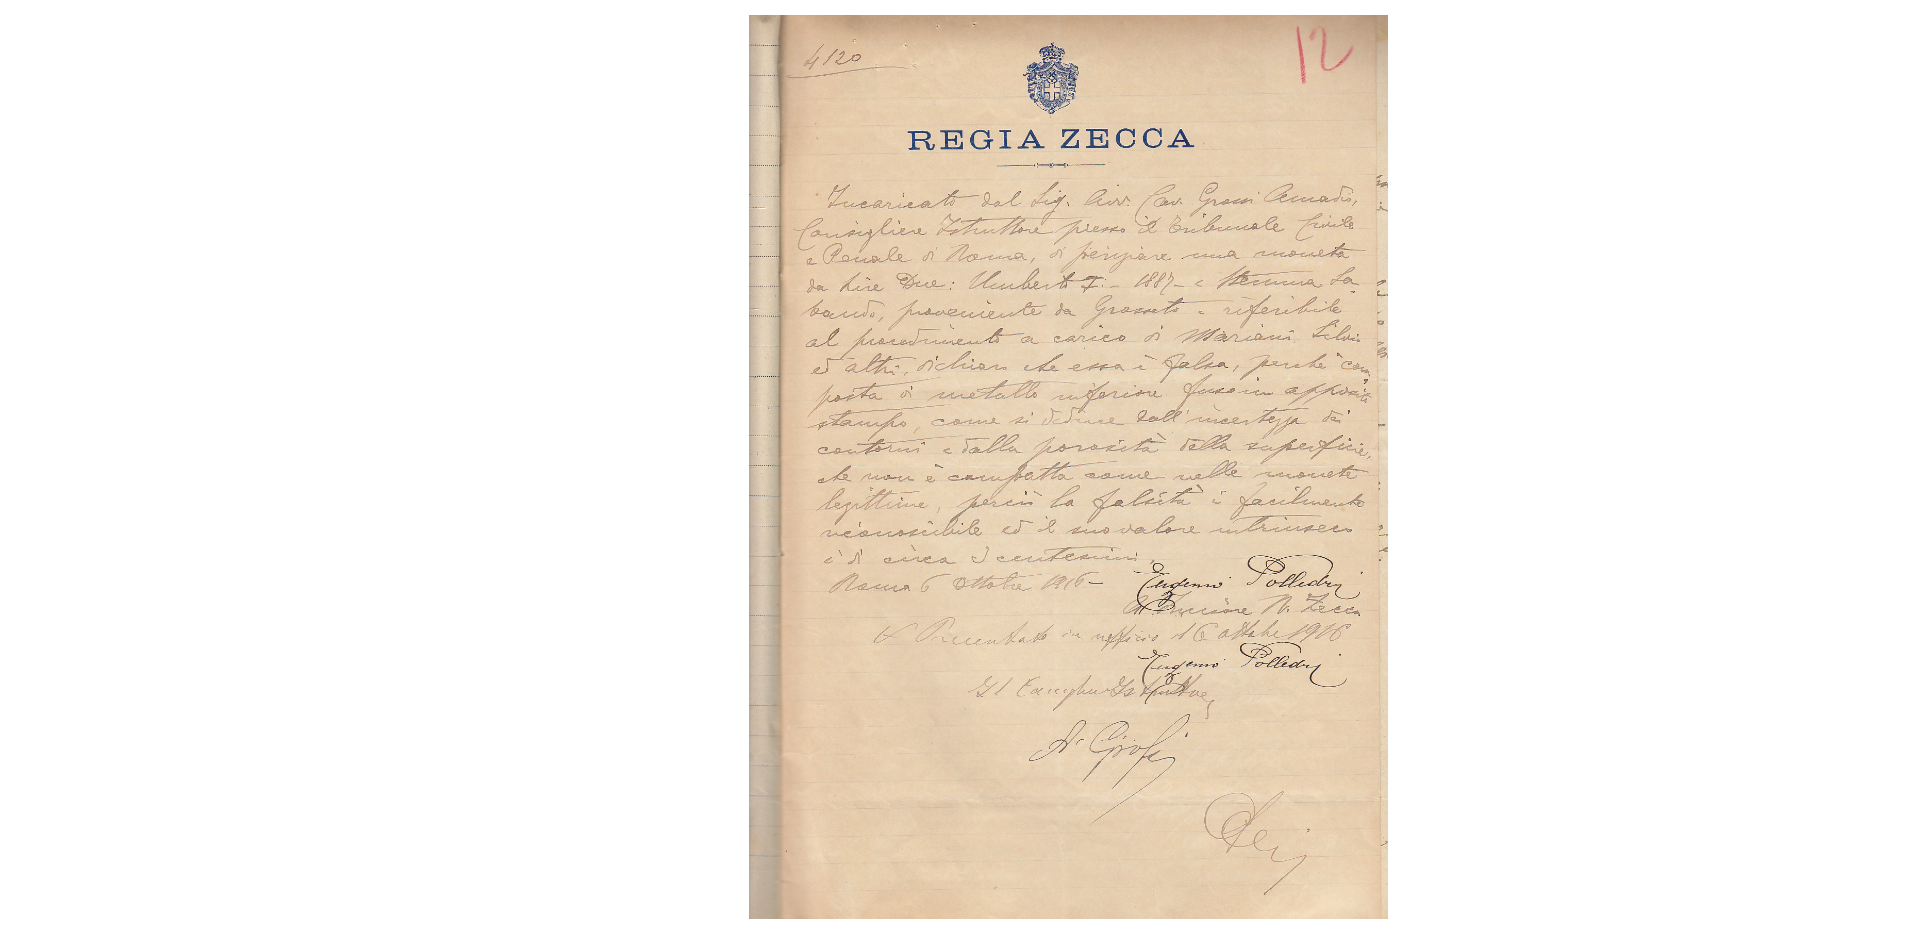 4120
12
REGIA ZECCA
Incaricato dal Sig. Avv. Cav. Grossi Amadio,
Consigliere Istruttore presso il Tribunale Civile
e Penale di Roma, di periziare una moneta
da Lire Due: Umberto I. - 1887 - e Stemma Sa-
baudo, proveniente da Grosseto - riferibile
al procedimento a carico di Mariani Silvio
ed altri, dichiaro che essa è falsa, perchè com-
posta di metallo inferiore fuso in apposito
stampo, come si deduce dall'incertezza dei
contorni e dalla porosità della superficie,
che non è compatta come nelle monete
legittime, perciò la falsità è facilmente
riconoscibile ed il suo valore intrinseco
è di circa centesimi.
Roma 6 Ottobre 1916 - Eugenio Polledri
Incisore R. Zecca
Presentato in ufficio 16 ottobre 1916
Eugenio Polledri
Il Consigliere Istruttore
A. Grossi